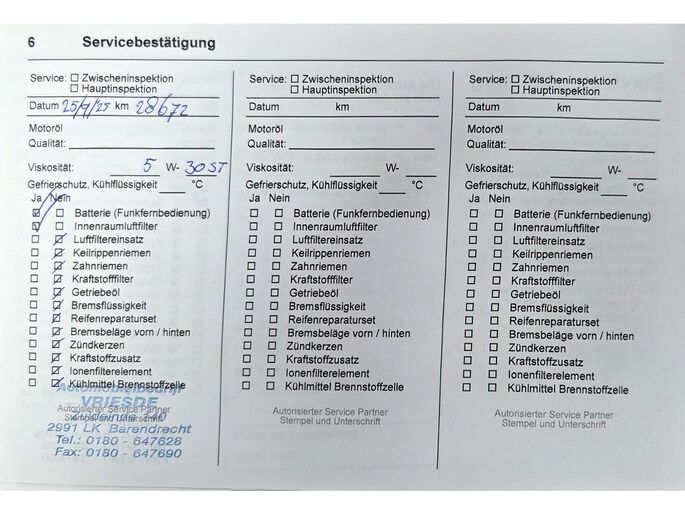 6 Servicebestätigung
Service: ☐ Zwischeninspektion
☐ Hauptinspektion
Datum 25/9/25 km 28672
Motoröl
Qualität:
Viskosität: 5 W- 30 ST
Gefrierschutz, Kühlflüssigkeit °C
Ja Nein
☑ ☐ Batterie (Funkfernbedienung)
☑ ☐ Innenraumluftfilter
☐ ☑ Luftfiltereinsatz
☐ ☑ Keilrippenriemen
☐ ☑ Zahnriemen
☐ ☑ Kraftstofffilter
☐ ☑ Getriebeöl
☐ ☑ Bremsflüssigkeit
☐ ☑ Reifenreparaturset
☐ ☑ Bremsbeläge vorn / hinten
☐ ☑ Zündkerzen
☐ ☑ Kraftstoffzusatz
☐ ☑ Ionenfilterelement
☐ ☑ Kühlmittel Brennstoffzelle
Automobielbedrijf
VRIESDE
Autorisierter Service Partner
Stempel und Unterschrift
140
2991 LK Barendrecht
Tel.: 0180 - 647628
Fax: 0180 - 647690
Service: ☐ Zwischeninspektion
☐ Hauptinspektion
Datum km
Motoröl
Qualität:
Viskosität: W-
Gefrierschutz, Kühlflüssigkeit °C
Ja Nein
☐ ☐ Batterie (Funkfernbedienung)
☐ ☐ Innenraumluftfilter
☐ ☐ Luftfiltereinsatz
☐ ☐ Keilrippenriemen
☐ ☐ Zahnriemen
☐ ☐ Kraftstofffilter
☐ ☐ Getriebeöl
☐ ☐ Bremsflüssigkeit
☐ ☐ Reifenreparaturset
☐ ☐ Bremsbeläge vorn / hinten
☐ ☐ Zündkerzen
☐ ☐ Kraftstoffzusatz
☐ ☐ Ionenfilterelement
☐ ☐ Kühlmittel Brennstoffzelle
Autorisierter Service Partner
Stempel und Unterschrift
Service: ☐ Zwischeninspektion
☐ Hauptinspektion
Datum km
Motoröl
Qualität:
Viskosität: W-
Gefrierschutz, Kühlflüssigkeit °C
Ja Nein
☐ ☐ Batterie (Funkfernbedienung)
☐ ☐ Innenraumluftfilter
☐ ☐ Luftfiltereinsatz
☐ ☐ Keilrippenriemen
☐ ☐ Zahnriemen
☐ ☐ Kraftstofffilter
☐ ☐ Getriebeöl
☐ ☐ Bremsflüssigkeit
☐ ☐ Reifenreparaturset
☐ ☐ Bremsbeläge vorn / hinten
☐ ☐ Zündkerzen
☐ ☐ Kraftstoffzusatz
☐ ☐ Ionenfilterelement
☐ ☐ Kühlmittel Brennstoffzelle
Autorisierter Service Partner
Stempel und Unterschrift